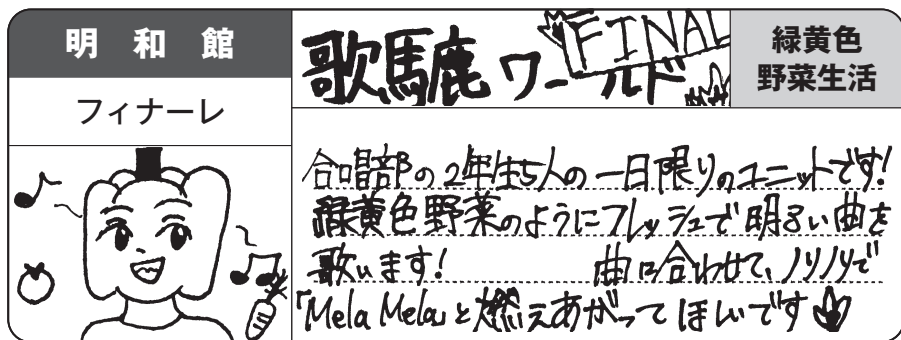 明和館
フィナーレ
歌馬鹿ワールド
FINAL
緑黄色
野菜生活
合唱部の2年生5人の一日限りのユニットです!
緑黄色野菜のようにフレッシュで明るい曲を
歌います! 曲に合わせて、ノリノリで
「Mela Mela」と燃えあがってほしいです